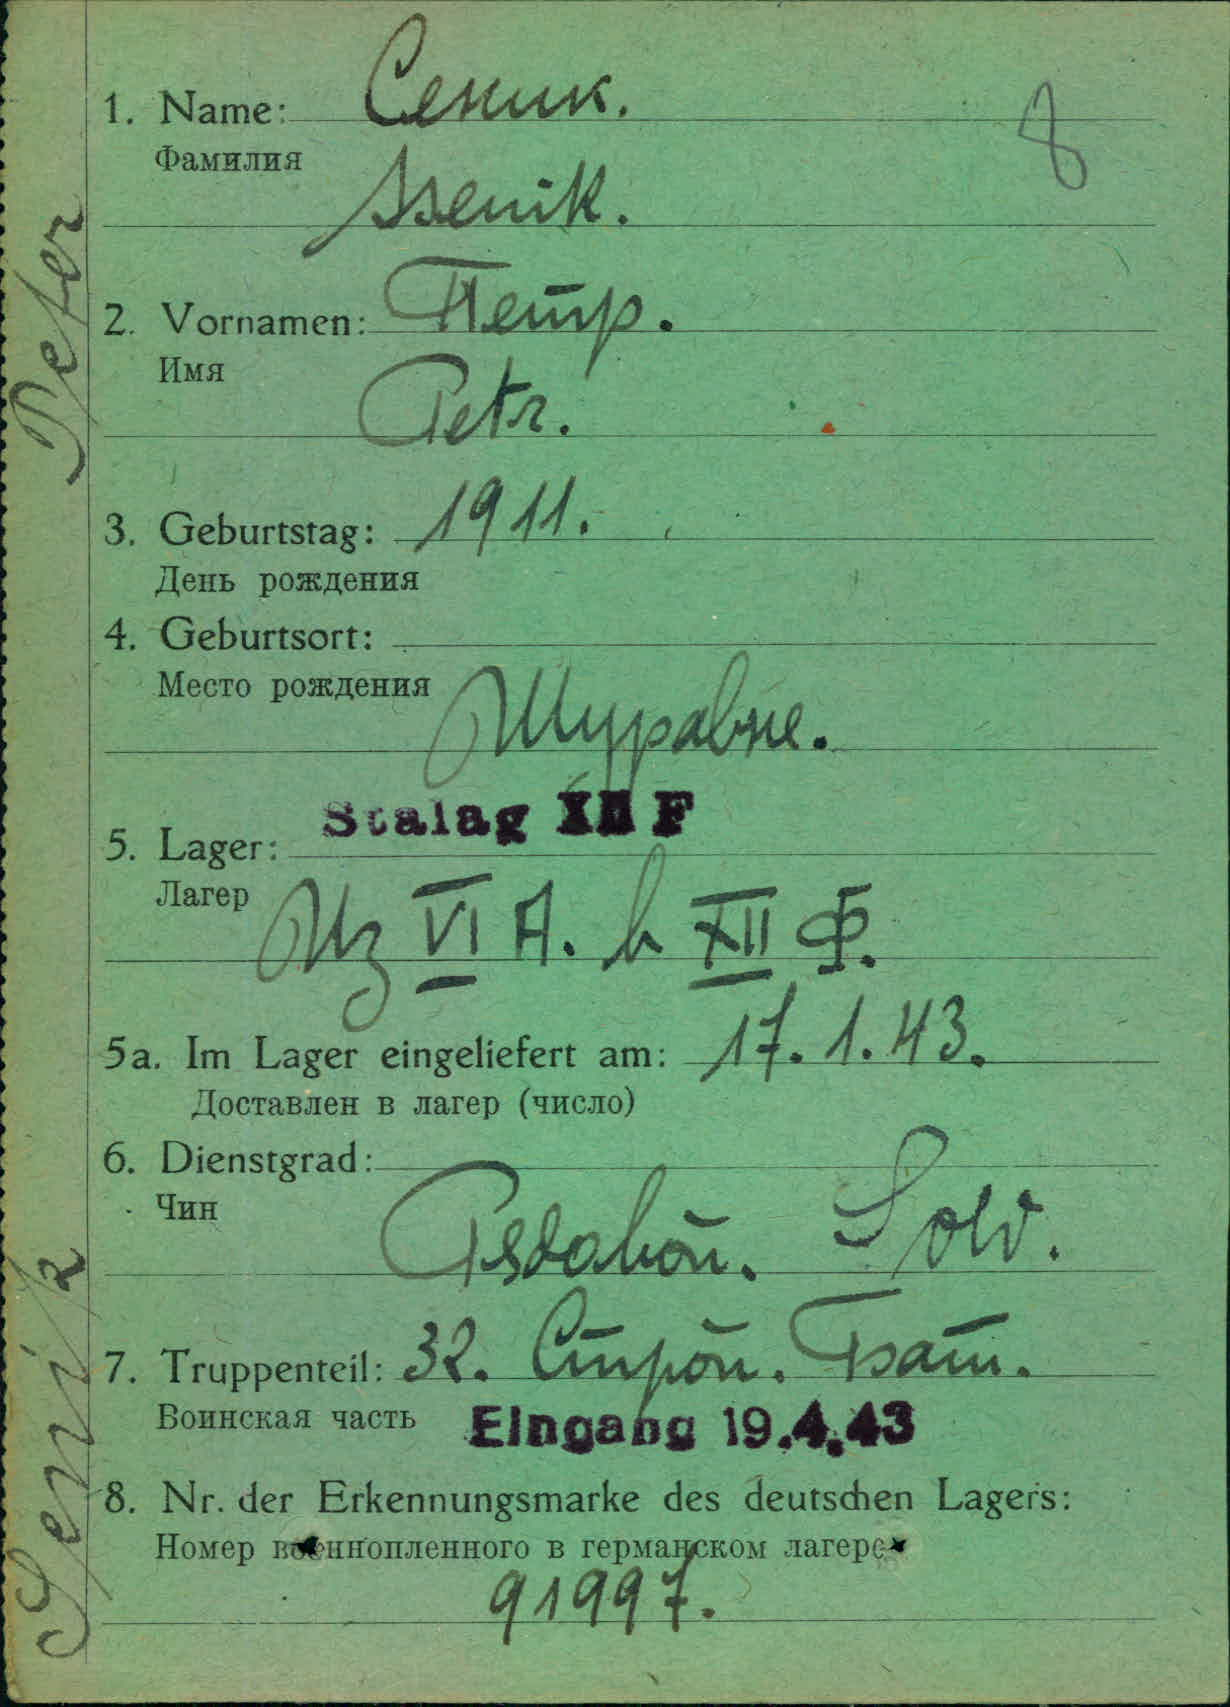 1. Name: Сеник.
8
Фамилия
Ssenik.
2. Vornamen: Петр.
Имя
Petr.
3. Geburtstag: 1911.
День рождения
4. Geburtsort:
Место рождения
Шуравне.
5. Lager: Stalag XII F
Лагер
Из VI А. в XII Ф.
5a. Im Lager eingeliefert am: 17. 1. 43.
Доставлен в лагер (число)
6. Dienstgrad:
Чин
Рядовой. Sold.
7. Truppenteil: 32. Строй. Бат.
Воинская часть Eingang 19.4.43
8. Nr. der Erkennungsmarke des deutschen Lagers:
Номер военнопленного в германском лагере
91997.
Senik Peter